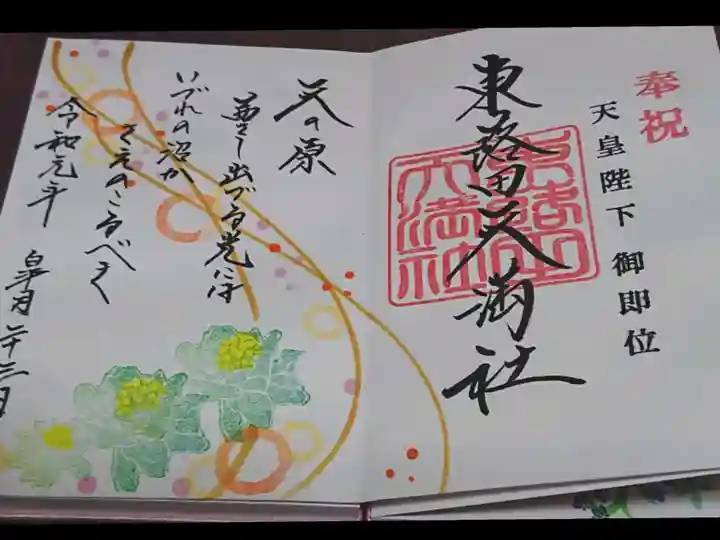 奉祝
天皇陛下 御即位
東路田天満社
東路田天満社
天の原
茜さし出づる光には
いづれの沼か
さえのこるべき
令和元年 皐月二十三日